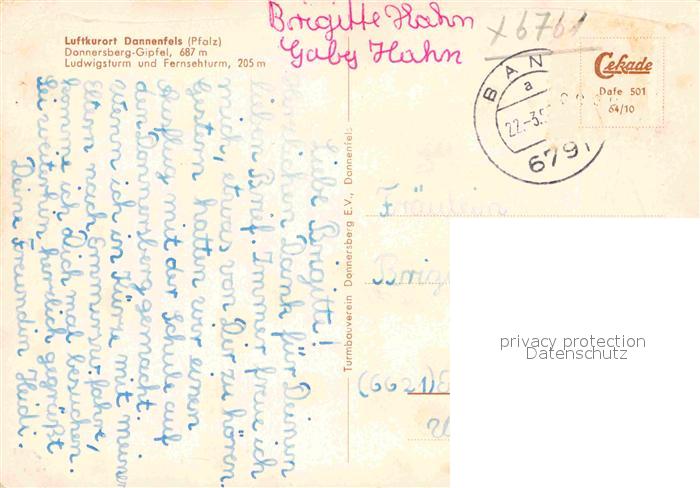 Luftkurort Dannenfels (Pfalz)
Donnersberg-Gipfel, 687 m
Ludwigsturm und Fernsehturm, 205 m
Brigitte Hahn
Gaby Hahn
x 6761
Cekade
Dafe 501
64/10
BAN
a
22.-3.5
6791
Liebe Brigitte!
herzlichen Dank für Deinen
lieben Brief. Immer freue ich
mich, etwas von Dir zu hören.
Gestern hatten wir einen
Ausflug mit der Schule auf
den Donnersberg gemacht.
Wenn ich in Kürze mit meinen
Eltern nach fahre,
komme ich Dich mal besuchen.
Sei weiterhin herzlich gegrüßt
Deine Freundin Heidi.
Turmbauverein Donnersberg E.V., Dannenfels
Fräulein
(6621)
privacy protection
Datenschutz